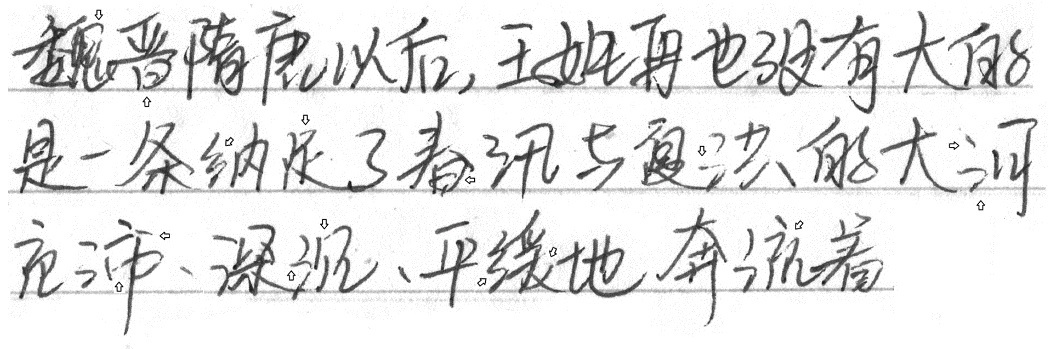 魏晋隋唐以后,王姓再也没有大的
是一条纳足了春汛与夏洪的大河
充沛、深沉、平缓地奔流着